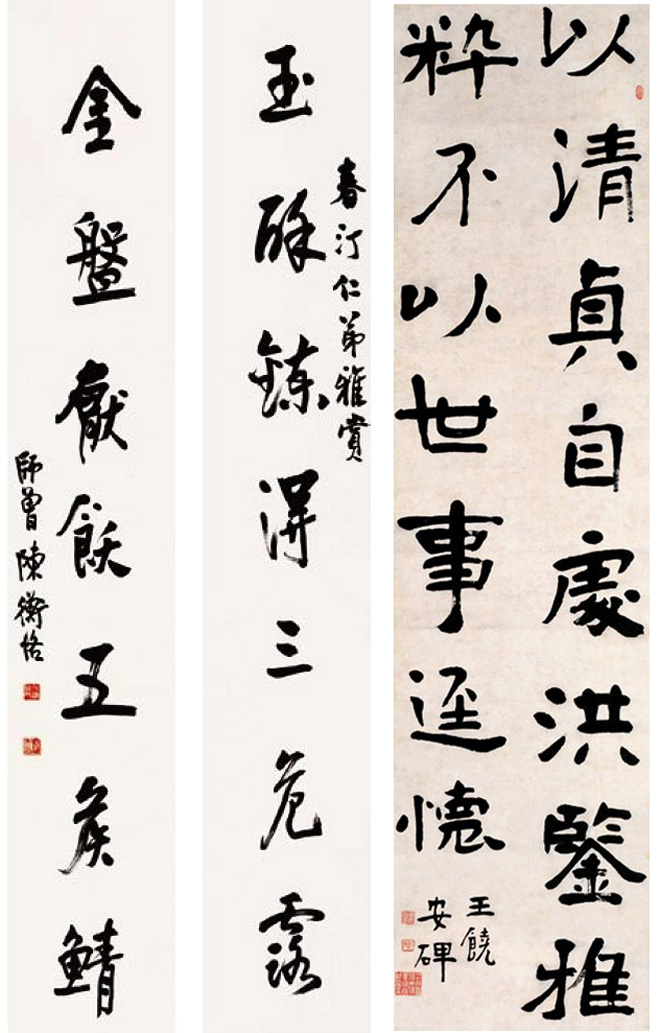 以清貞自處洪鑒雅
粹不以世事逕懷
王饒
安碑
春汀仁弟雅賞
玉酥鍊得三危露
金盤厭飫五侯鯖
師曾陳衡恪